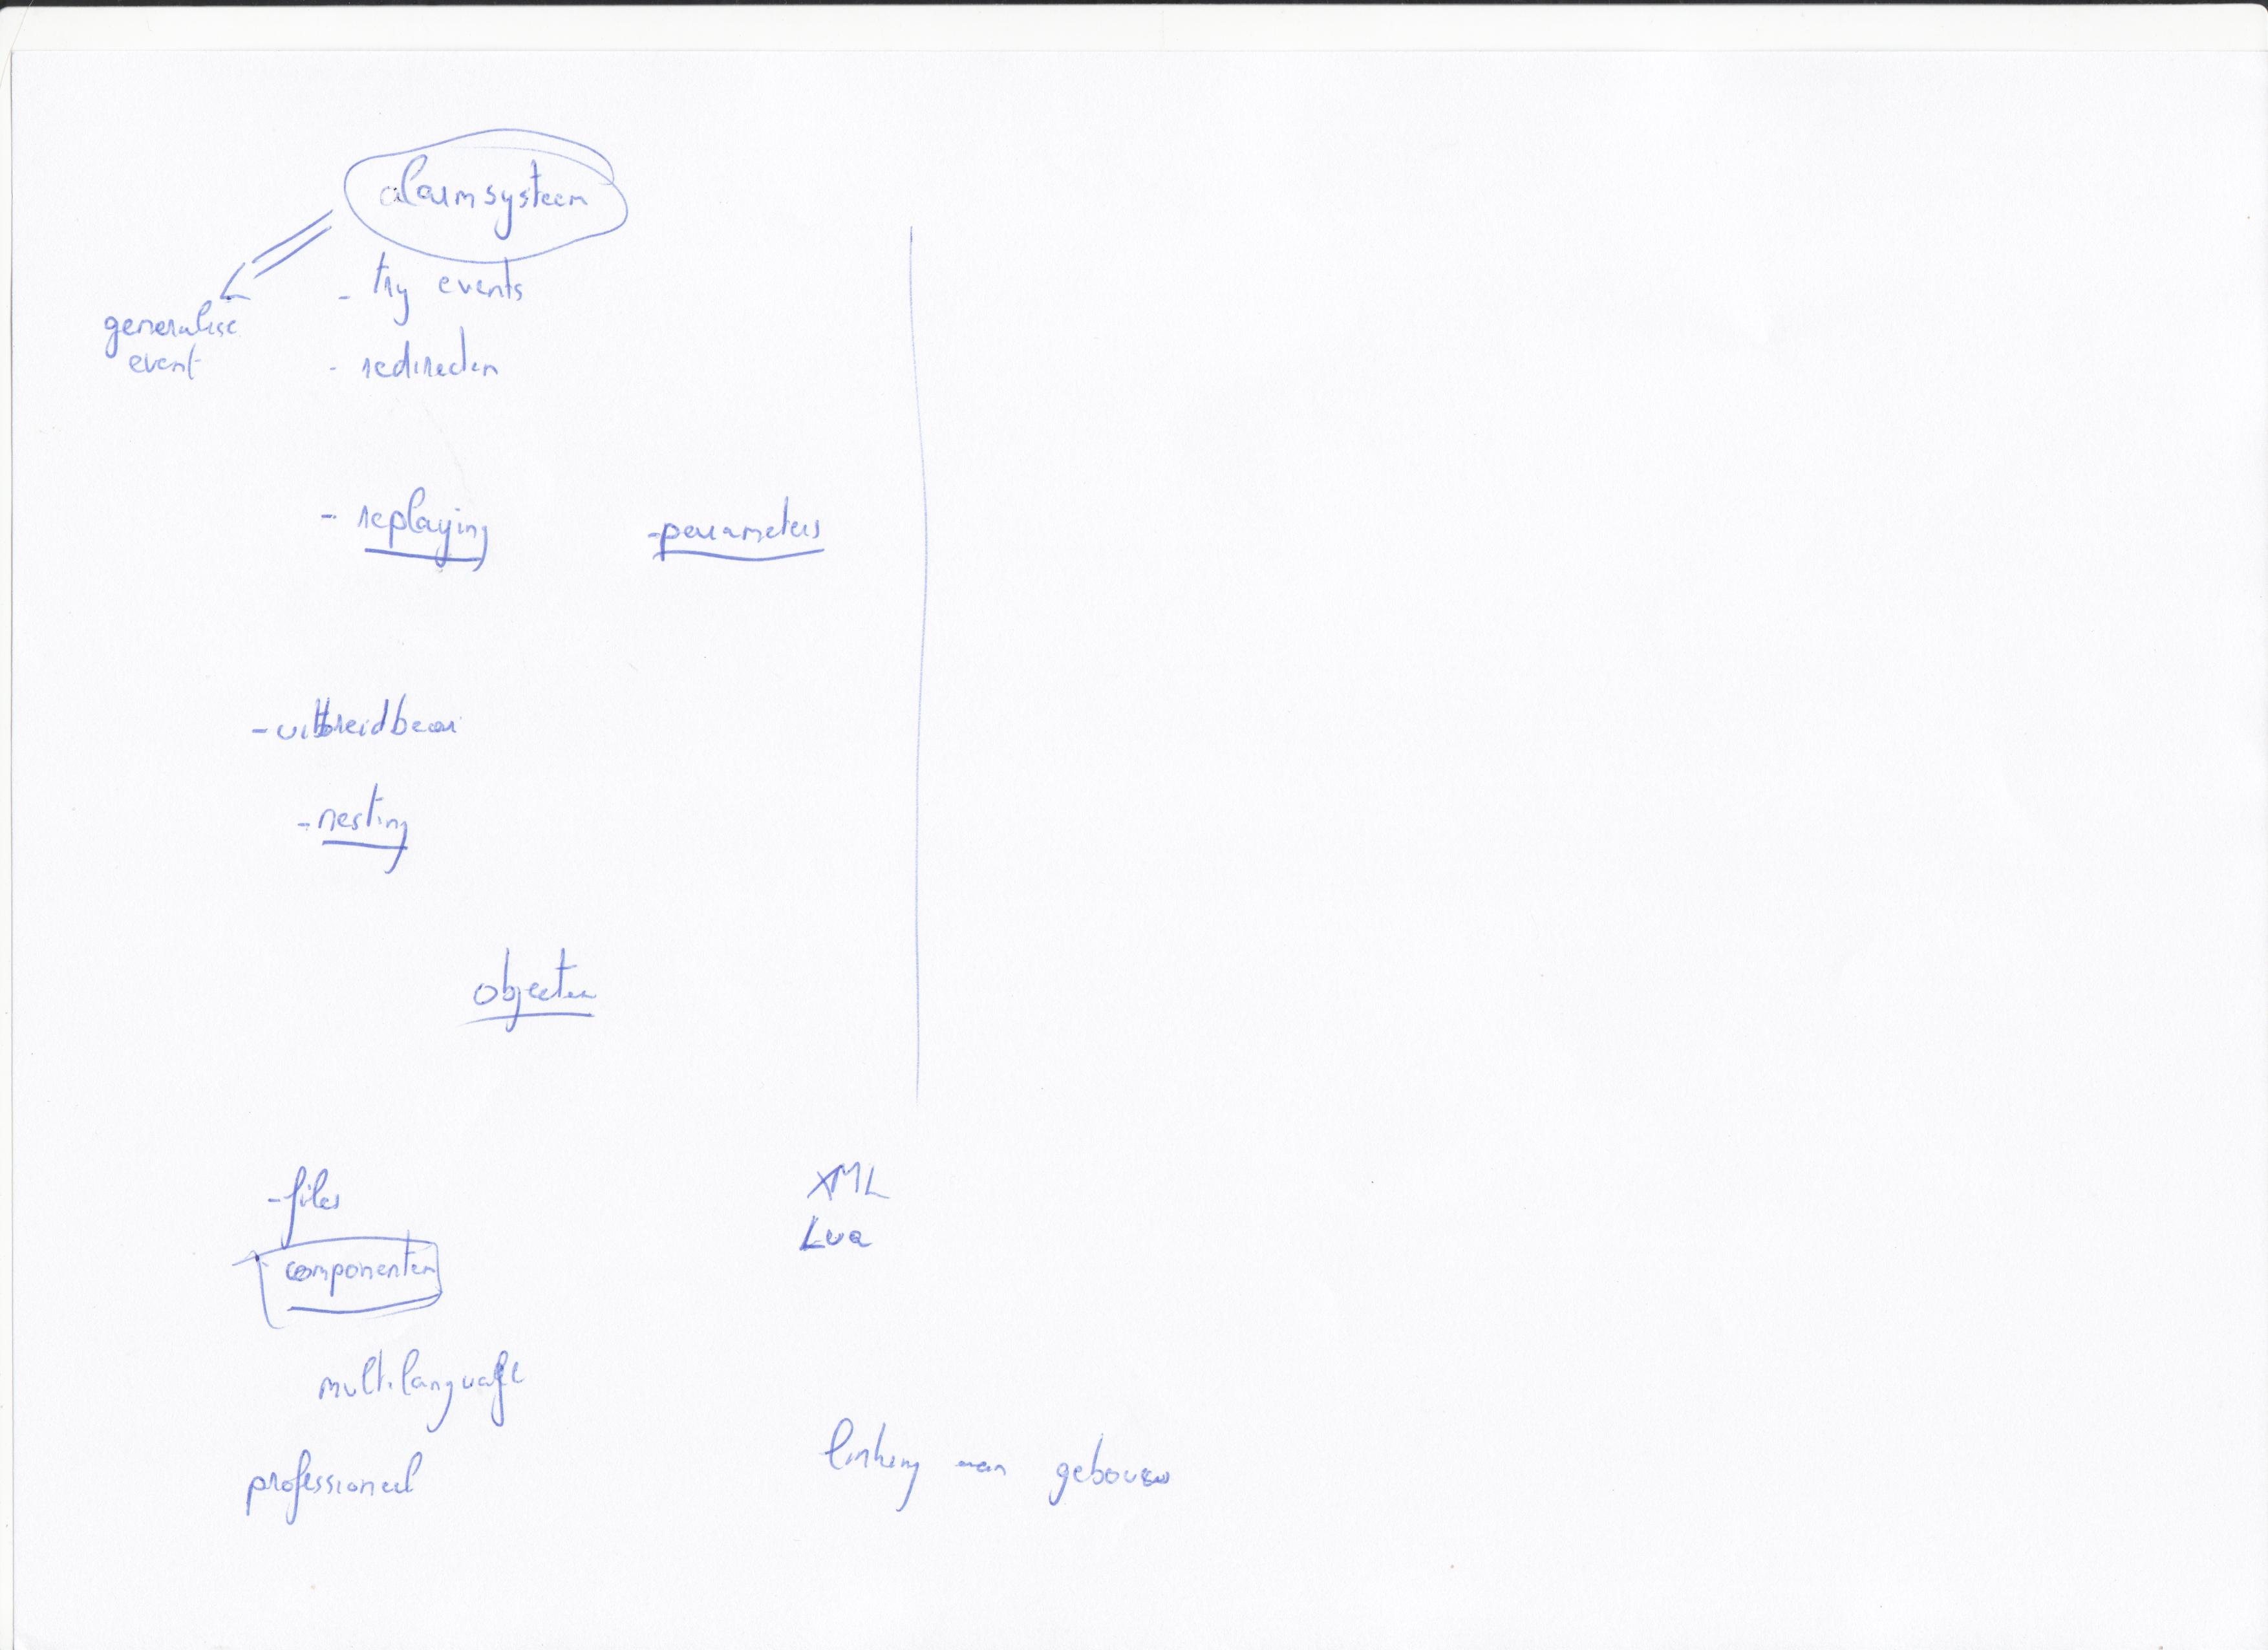 alarmsysteem
- try events
generalise
event
- redirecten
- replaying
- parameters
- uitbreidbaar
- nesting
objecten
- files
XML
Lua
componenten
multilanguage
professioneel
linking aan gebouw